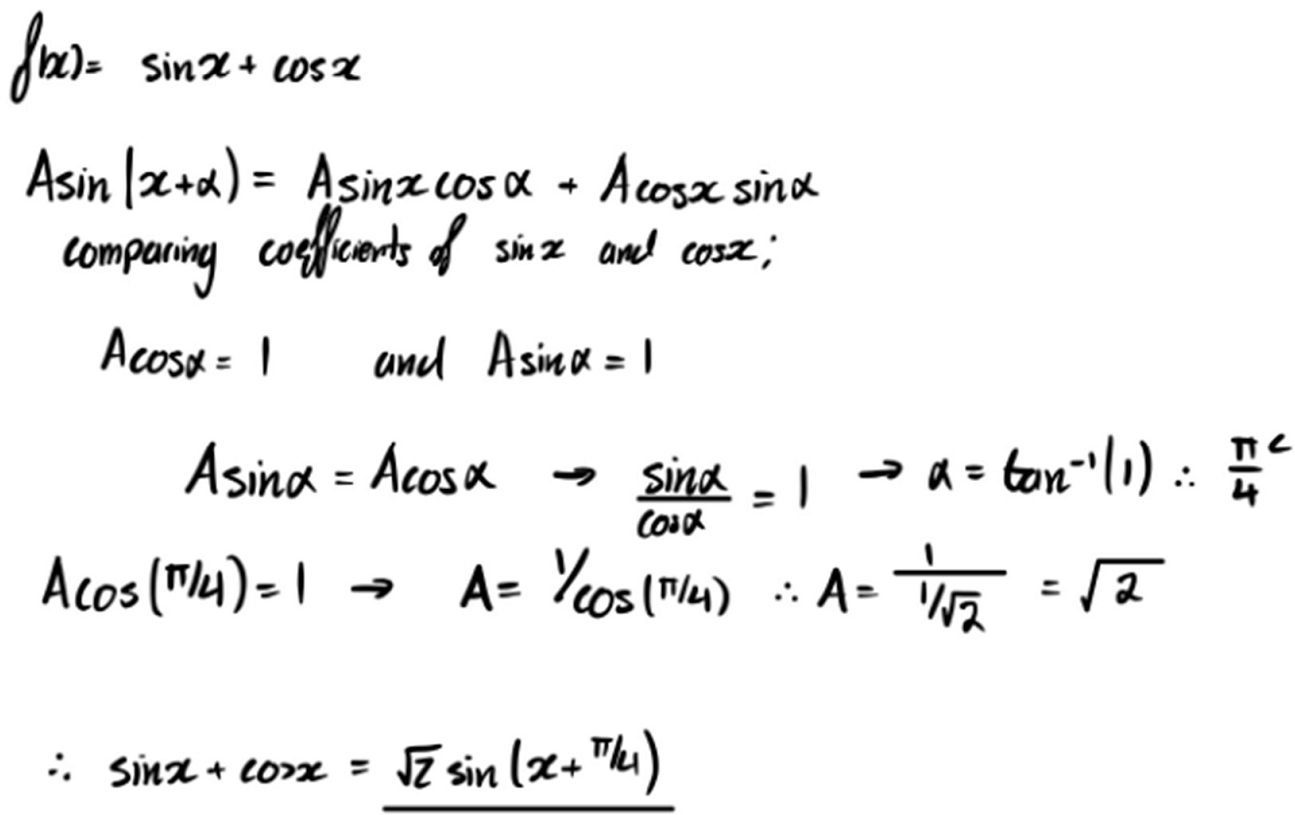 f(x)= sinx + cosx
Asin(x+α) = Asinxcosα + Acosxsinα
comparing coefficients of sinx and cosx;
Acosα = 1 and Asinα = 1
Asinα = Acosα → sinα/cosα = 1 → α = tan⁻¹(1) ∴ π/4ᶜ
Acos(π/4) = 1 → A = 1/cos(π/4) ∴ A = 1/(1/√2) = √2
∴ sinx + cosx = √2 sin(x+π/4)